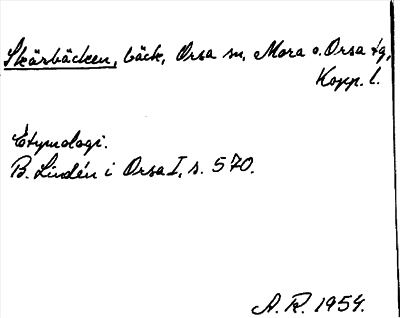 Skärbäcken, bäck, Orsa sn, Mora o. Orsa tg,
Kopp. l.
Etymologi.
B. Lindén i Orsa I, s. 570.
A. R. 1954.